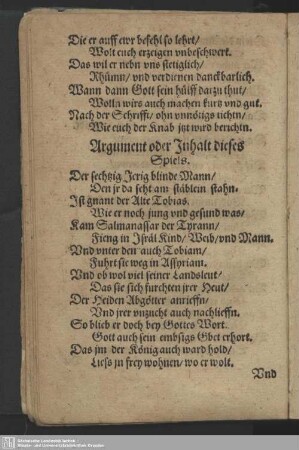 Die er auff ewr befehl so lehrt/
Wolt euch erzeigen vnbeschwert.
Das wil er nebn vns stetiglich/
Rhümn/ vnd verdienen danckbarlich.
Wann dann Gott sein hülff darzu thut/
Wolln wirs auch machen kurtz vnd gut.
Nach der Schrifft/ ohn vnnötigs tichtn/
Wie euch der Knab jtzt wird berichtn.
Argument oder Inhalt dieses
Spiels.
Der sechtzig Jerig blinde Mann/
Den jr da seht am stäblein stahn/
Ist gnant der Alte Tobias.
Wie er noch jung vnd gesund was/
Kam Salmanassar der Tyrann/
Fieng in Isräl Kind/ Weib/ vnd Mann.
Vnd vnter den auch Tobiam/
Fuhrt sie weg in Assyriam.
Vnd ob wol viel seiner Landsleut/
Das sie sich furchten jrer Heut/
Der Heiden Abgötter anrieffn/
Vnd jrer vnzucht auch nachlieffn.
So blieb er doch bey Gottes Wort.
Gott auch sein embsigs Gbet erhort.
Das jm der König auch ward hold/
Liess jn frey wohnen/ wo er wolt.
Vnd